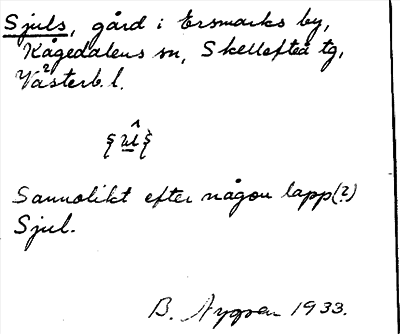 Sjuls, gård i Ersmarks by,
Kågedalens sn, Skellefteå tg,
Västerb. l.
Sannolikt efter någon lapp(?)
Sjul.
B. Nygren 1933.